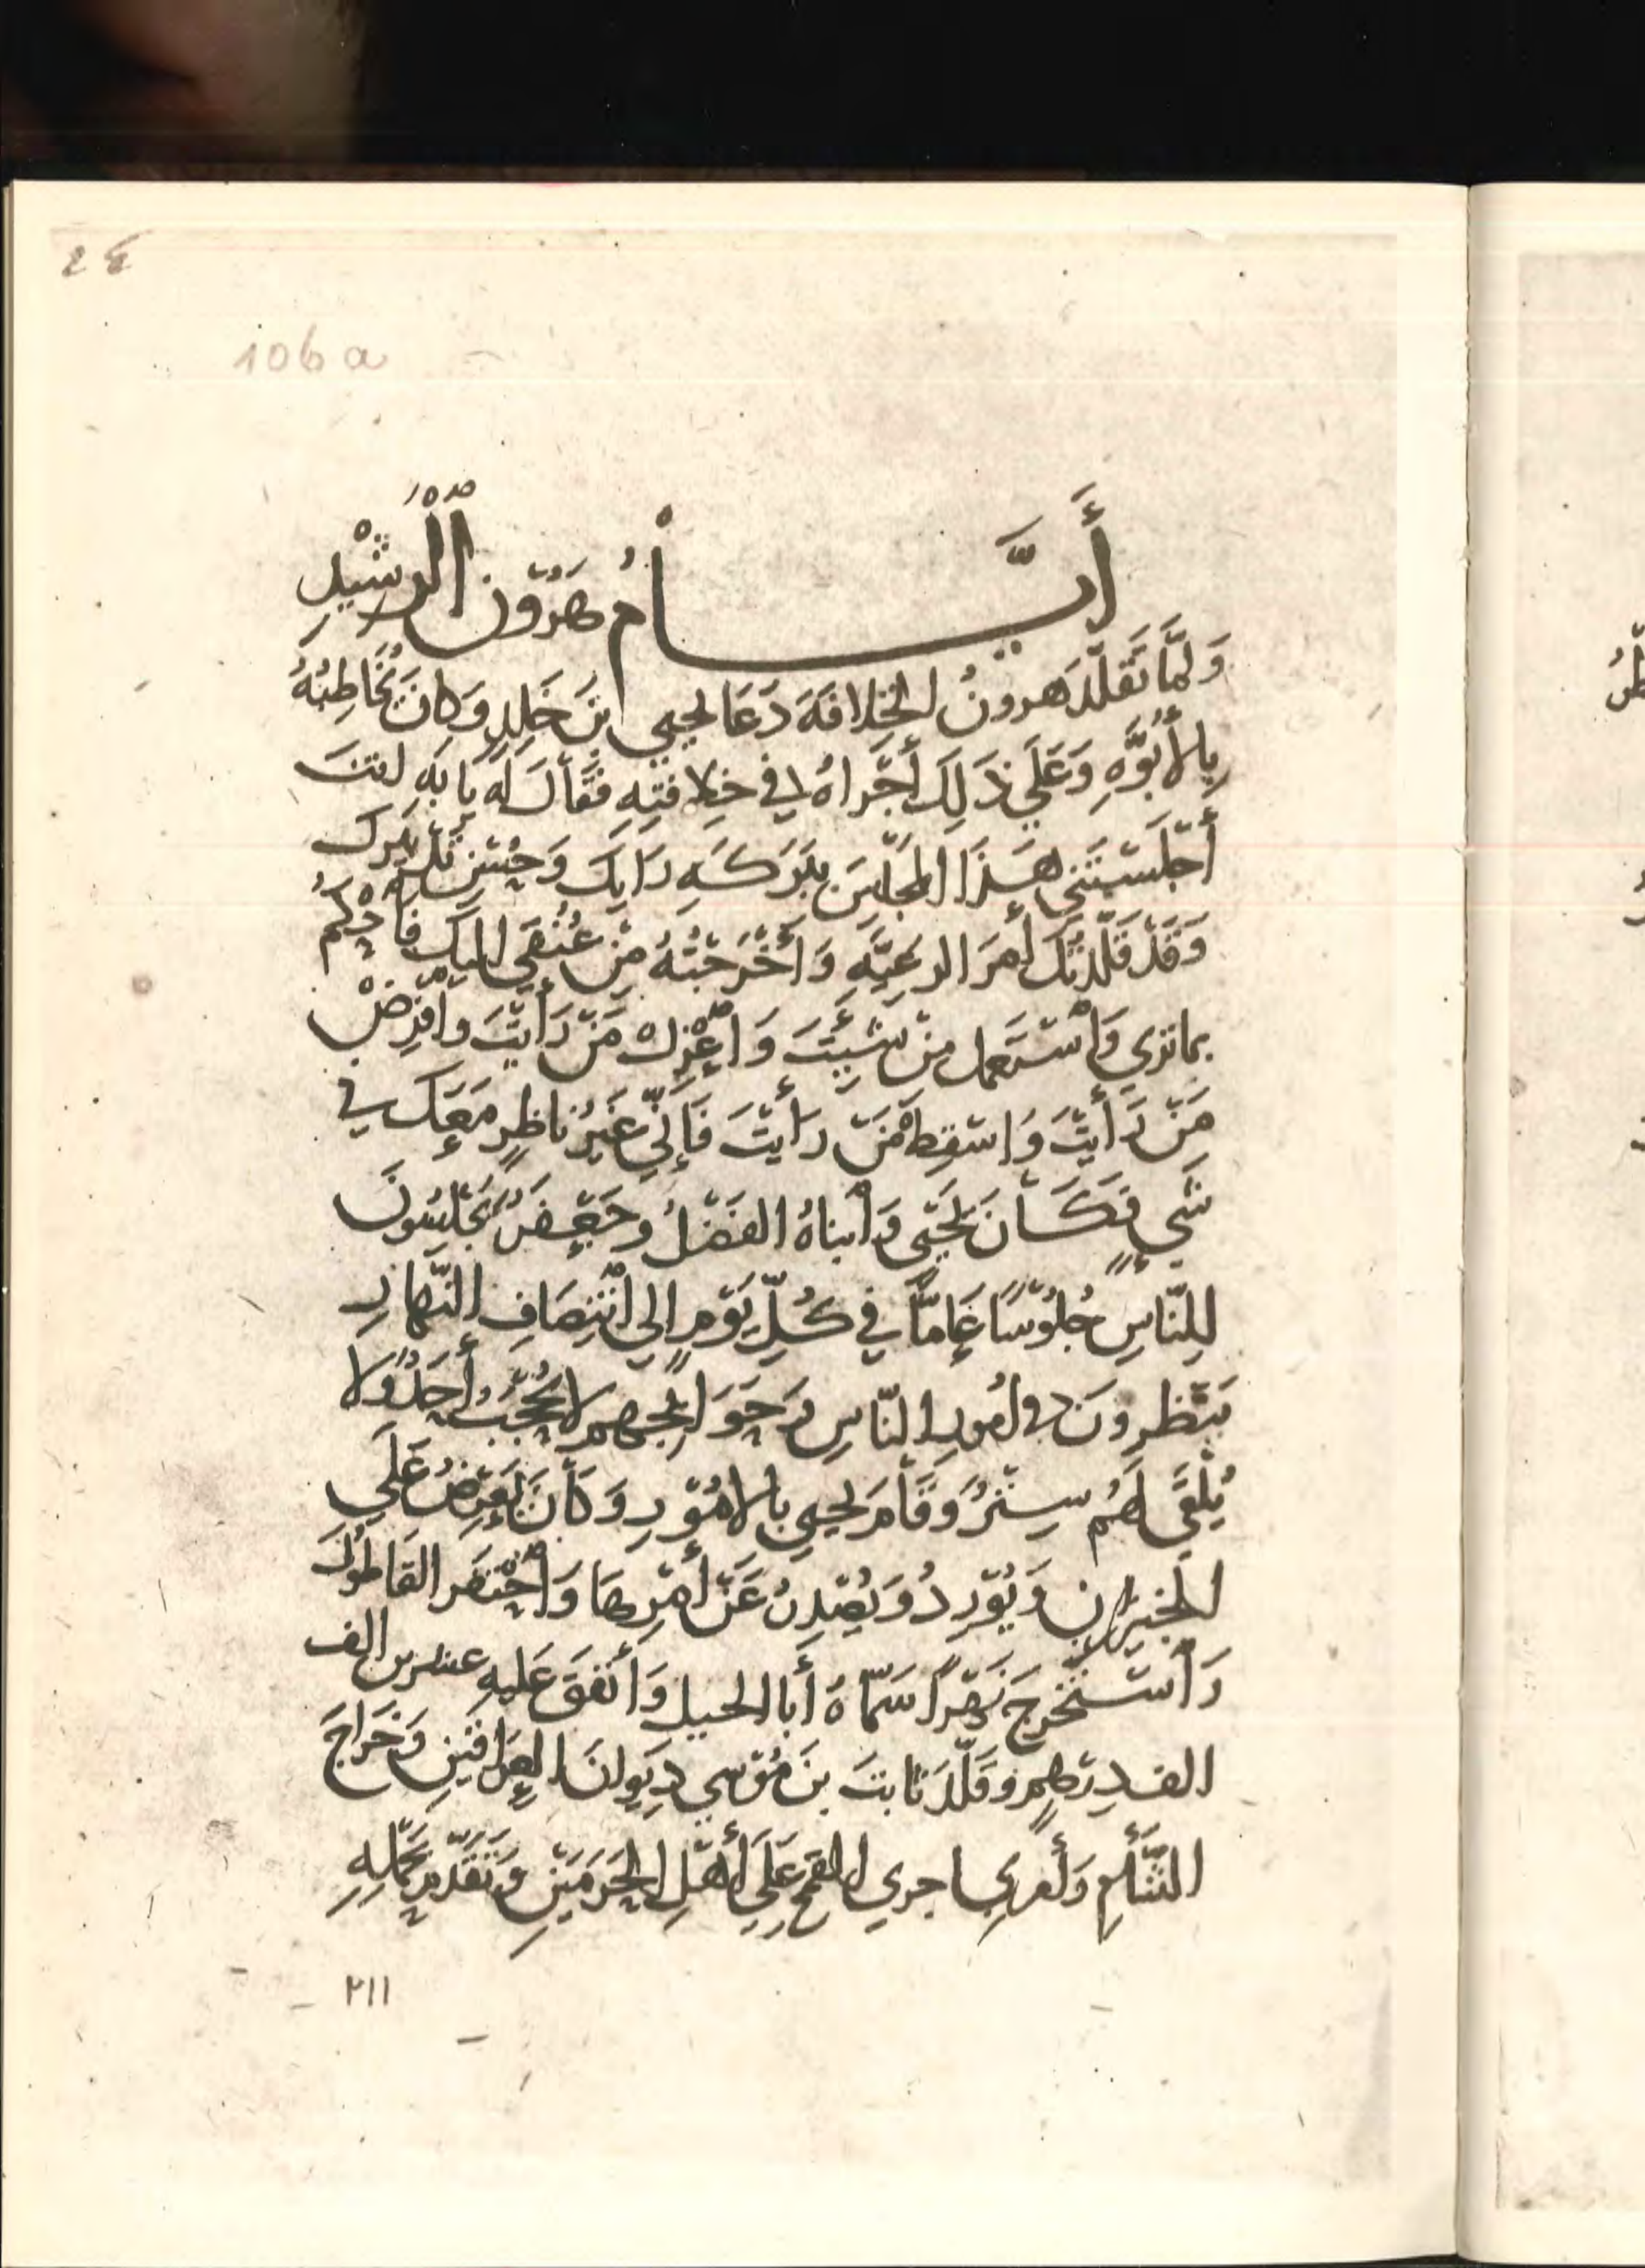 ٢٤
106a
أَيَّامُ هَرُوْنَ الْرَشْيِدِ
وَلمَّا تَقَلّدَ هرونُ الخِلافَهَ دَعَا يحيي ابنَ خَلِدٍ وَكانَ يُخَاطِبُهُ
بِالأُبُوَّهِ وَعَلَي ذَلِكَ أَجْرَاهُ في خِلافتِهِ فَقَالَ لَه يا بَهِ انتَ
أَجْلَسْتَنِي هَذَا المجْلِسَ بِبَرَكَهِ رَايكَ وَحُسْنِ تَدْبِيرِكَ
وَقَدْ قَلّدتُكَ أَمرَ الرعِيَّهِ وَأَخْرَجْتُهُ مِنْ عُنُقي اليك فَاْحْكُمْ
بما تري وَاْسْتَعمل منْ شِيْتَ وَاْعْزِلْ مَنْ رَأَيْتَ وافْرِضْ
مَنْ رَأَيْتَ وَاسْقِطْ مَنْ رَأَيْتَ فَإِنّي غَيْرُ ناظِرٍ مَعَكَ في
شَيٍ فَكَانَ يَحْيَى وَاْبناهُ الفَضْلُ وجَعْفَرٌ يَجْلِسُونَ
لِلنّاسِ جُلُوْسًا عَامّاً في كُلِّ يَوْمٍ إلي اْنْتِصَافِ النَّهارِ
يَنْظرونَ في أُمورِ النّاسِ وَحَوَائِجِهِم لا يُحْجَبُ أَحَدٌ وَلا
يُلْقَى لَهُم سِتْرٌ وَقَامَ يحيي بالامُوْرِ وَكَانَ يَعْرِضُ عَلَي
الخيزرانِ وَيُوْرِدُ وَيُصْدِرُ عَنْ أَمْرِهَا وَاْحْتَفَرَ القَاطُولَ
وَاْسْتَخْرَجَ نَهْرًا سَمّاهُ أَبا الجيل وَأَنْفَقَ عَليهِ عشرين الف
الف دِرْهمٍ وقَلّدَ ثابتَ بنَ مُوْسي دِيَوانَ العِرَاقَيْنِ وَخَرَاجَ
الشَّأمِ وَأَمرَ بِاجري القمح عَلَي أَهْلِ الحَرَمَيْنِ وَتَقَدَّمَ بِحَمْلِهِ
٢١١